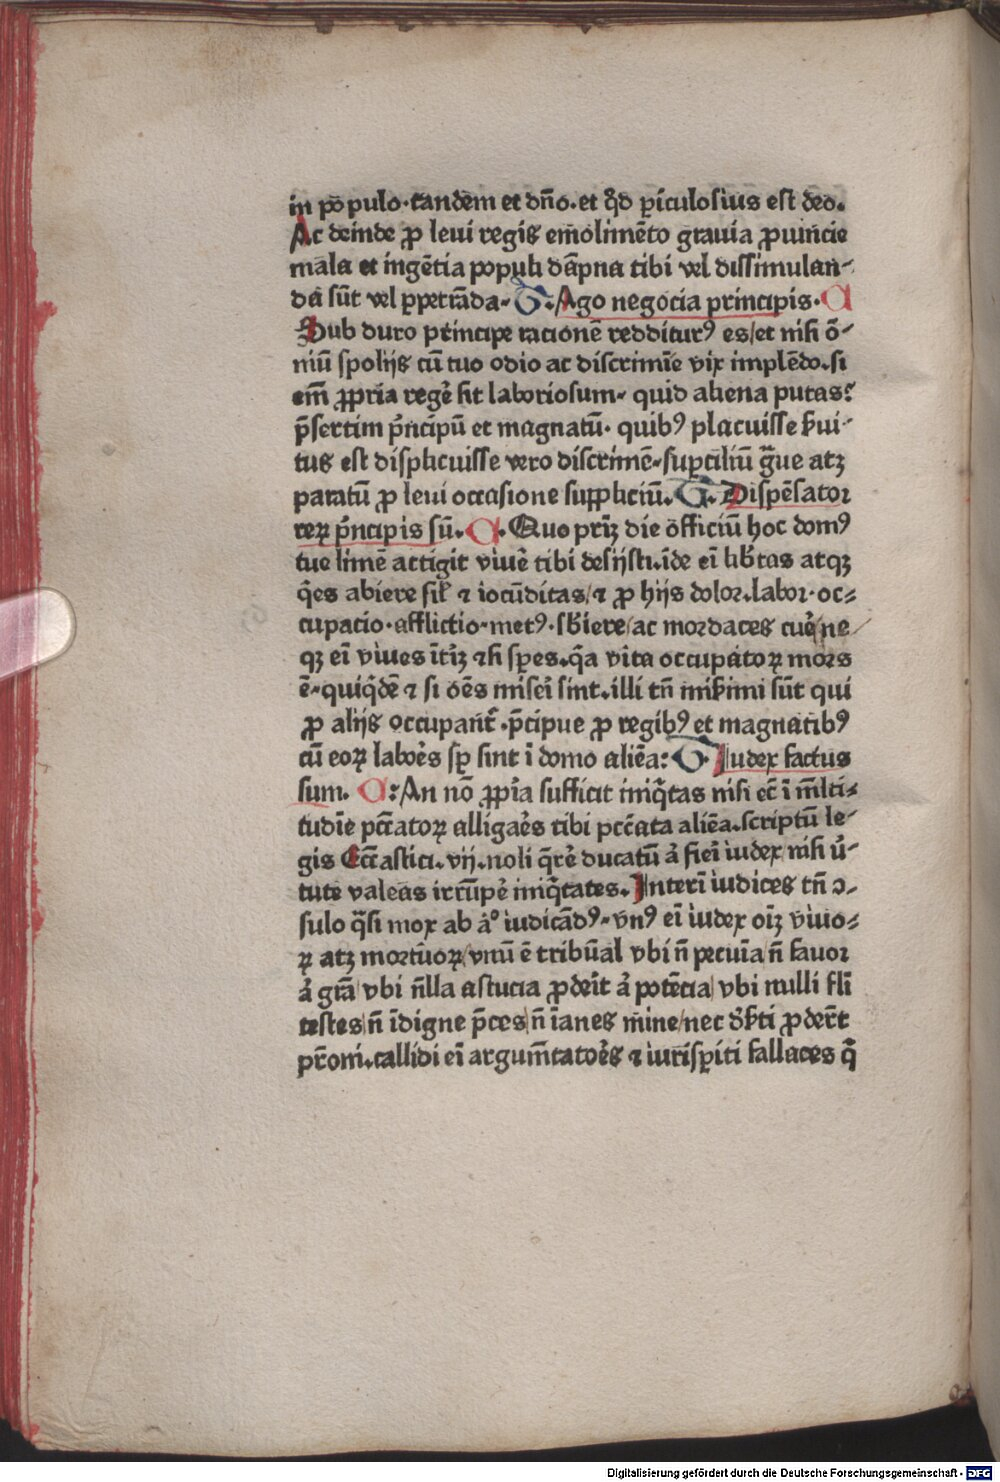 in põ pulo· tandem et dño· et q̃d ꝑiculosius est deo.
Ac deinde ꝓ leui regis em̃olimẽto grauia ꝓuincie
mala et ingẽtia populi dãpna tibi vel dissimulan-
da sũt vel ꝑpetrãda· G·Ago negocia principis· C
Sub duro principe racionẽ redditurꝰ es/et nisi õ-
niũ spolijs cũ tuo odio ac discrimĩe vix implẽdo. si
em̃ ꝓpria regẽ sit laboriosum· quid aliena putas?
p̃sertim p̃ncipũ et magnatũ· quibꝰ placuisse s̃ui-
tus est displicuisse vero discrimẽ· suꝑciliũ g̃ue atz
paratũ ꝓ leui occasione suppliciũ. G· Dispẽsator
reꝝ p̃ncipis sũ. C· Quo priꝫ die õfficiũ hoc domꝰ
tue limẽ attigit viuẽ tibi desijsti. ĩde eĩ lib̃tas atqꝫ
q̃es abiere sil̃ ⁊ iocũditas/⁊ ꝓ hijs dolor. labor· oc-
cupacio· afflictio· metꝰ· sb̃iere/ac mordaces cuẽ/ne
qꝫ eĩ viues ĩtiꝫ ⁊ si spes. q̃a vita occupatoꝝ mors
ẽ· quiq̃dẽ ⁊ si oẽs miseĩ sint. illi tñ mis̃imi sũt qui
ꝓ alijs occupant̃ · p̃cipue ꝓ regibꝰ et magnatibꝰ
cũ eoꝝ laboẽs sꝑ sint ĩ domo aliẽa: G· Judex factus
sum. C: An nõ ꝓpĩa sufficit iniq̃tas nisi ec̃ ĩ m̃lti-
tudĩe pcc̃atoꝝ alligaẽs tibi pcc̃ata aliẽa. scriptũ le-
gis Ecc̃astici. vij. noli q̃rẽ ducatũ ã fieĩ iudex/nisi ũ-
tute valeas irrũpẽ iniq̃tates. Interĩ iudices tñ ↄ-
sulo q̃si mox ab ã° iudicãdꝰ· vnꝰ eĩ iudex oĩꝫ viuo-
ꝝ atꝫ mortuoꝝ/vnũ ẽ tribũal vbi ñ pecuĩa/ñ fauor
ã grã/vbi ñlla astucia ꝓdeĩt ã potẽcia/vbi nulli fl̃i
testes/ñ ĩdigne p̃ces/ñ ĩanes m̃ine/nec d̃s̃ti ꝓdeĩt
pr̃oni. callidi eĩ argum̃tatoẽs ⁊ iurisꝑiti fallaces q̃
Digitalisierung gefördert durch die Deutsche Forschungsgemeinschaft · DFG